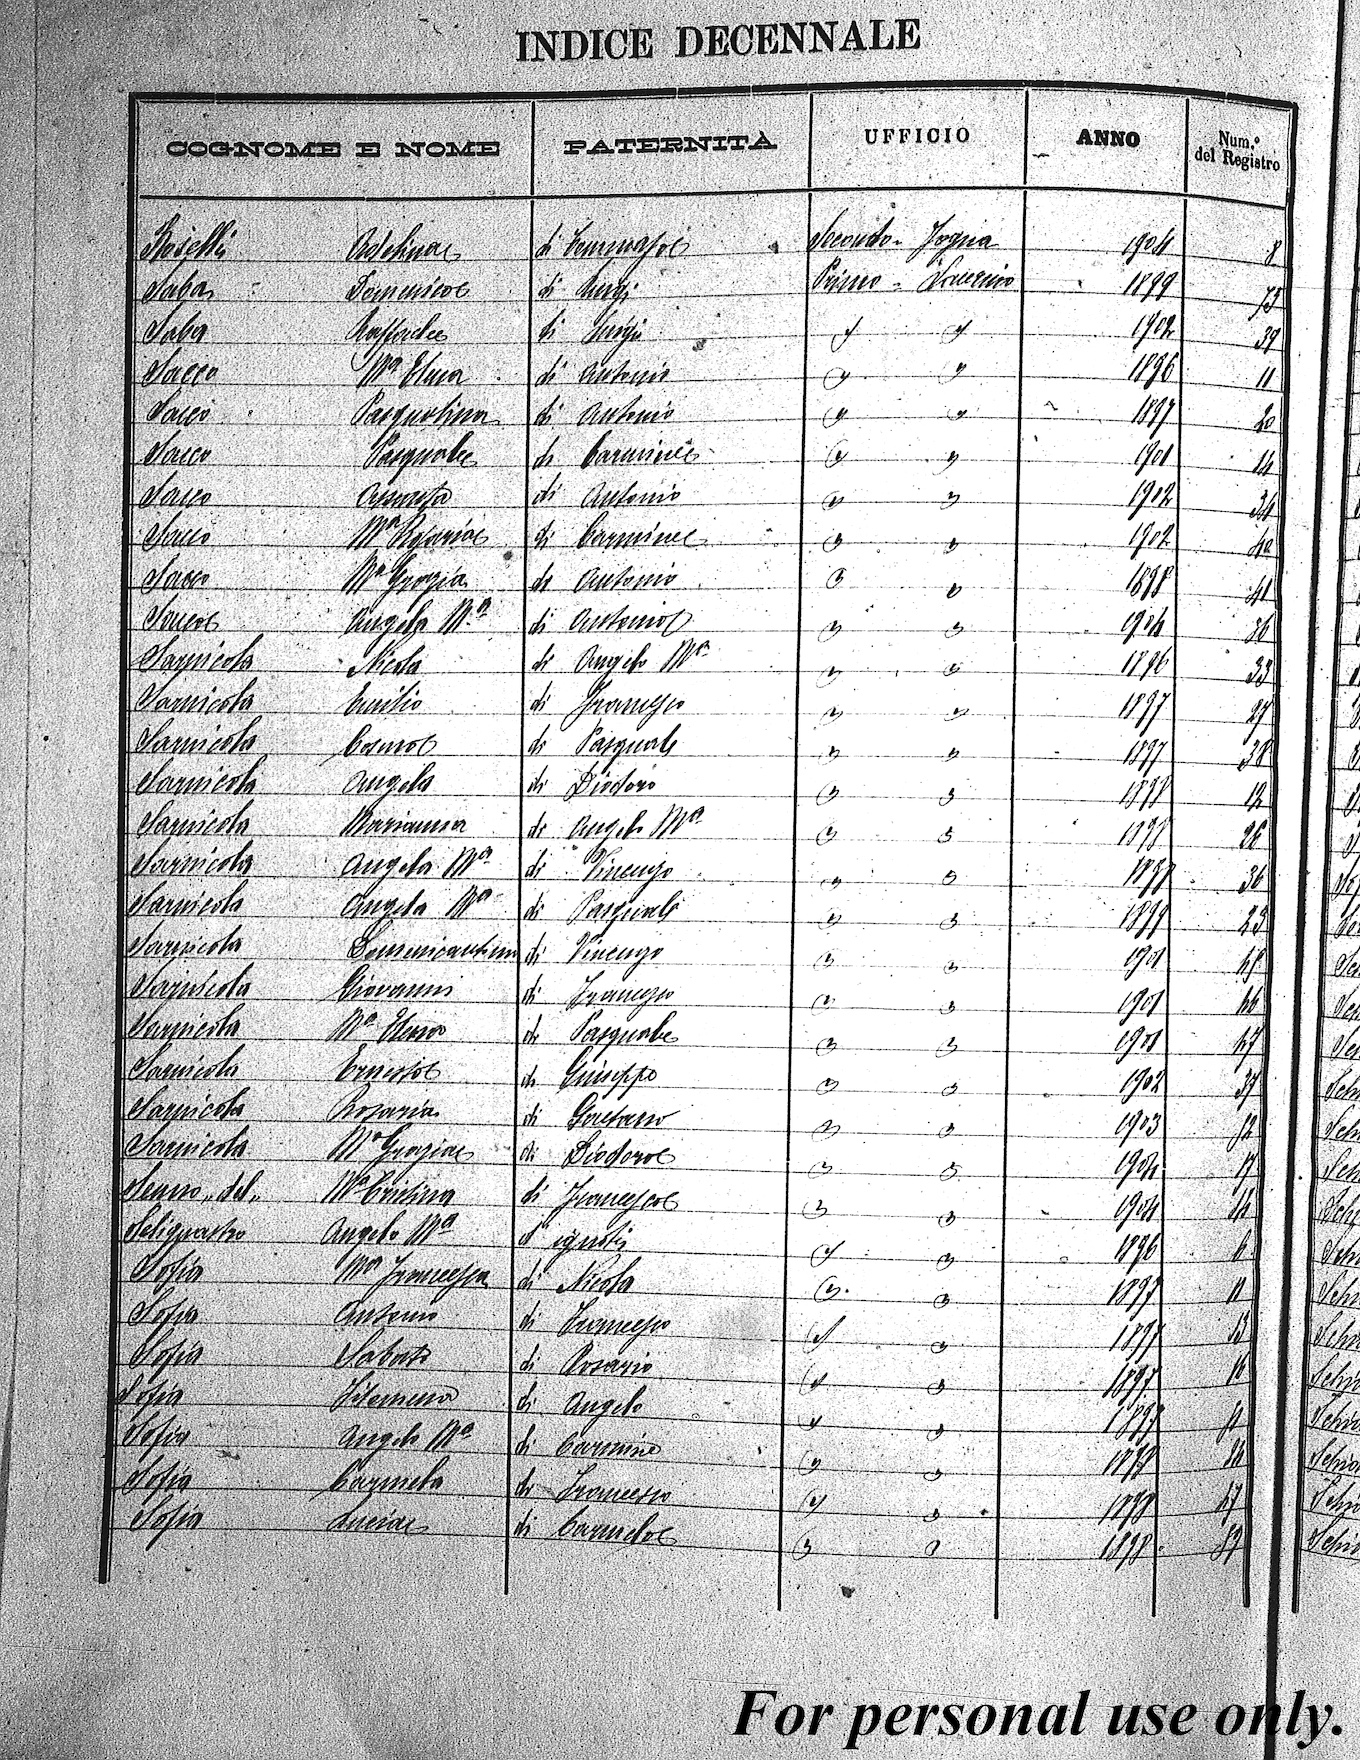 INDICE DECENNALE
COGNOME E NOME PATERNITÀ UFFICIO ANNO Num.º del Registro
Roselli Adelina di Tommaso Secondo - 1904 8
Saba Domenico di Luigi Primo - 1899 75
Saba Raffaele di Luigi " " 1902 39
Sacco Mª Elena di Antonio " " 1896 11
Sacco Pasqualina di Antonio " " 1897 20
Sacco Pasquale di Carmine " " 1901 14
Sacco Assunta di Antonio " " 1902 34
Sacco Mª Rosaria di Carmine " " 1902 40
Sacco Mª Grazia di Antonio " " 1898 41
Sacco Angela Mª di Antonio " " 1904 36
Sarnicola Nicola di Angelo Mª " " 1896 33
Sarnicola Emilio di Francesco " " 1897 27
Sarnicola Cosmo di Pasquale " " 1897 38
Sarnicola Angela di Diodoro " " 1898 12
Sarnicola Marianna di Angelo Mª " " 1898 26
Sarnicola Angela Mª di Vincenzo " " 1898 36
Sarnicola Angela Mª di Pasquale " " 1899 23
Sarnicola Domenicantonio di Vincenzo " " 1901
Sarnicola Giovanni di Francesco " " 1901 44
Sarnicola Mª Elena di Pasquale " " 1901 47
Sarnicola Ernesto di Giuseppe " " 1902 37
Sarnicola Rosaria di Gaetano " " 1903 12
Sarnicola Mª Grazia di Diodoro " " 1904 17
Senno "del" Mª Cristina di Francesco " " 1904 44
Seliquastro Angelo Mª d'ignoti " " 1896 6
Sofia Mª Francesca di Nicola " " 1897 11
Sofia Antonio di Francesco " " 1897 13
Sofia Sabato di Rosario " " 1897 16
Sofia Filomena di Angelo " " 1897
Sofia Angelo Mª di Carmine " " 1898 34
Sofia Carmela di Francesco " " 1898 47
Sofia Lucia di Carmelo " " 1898 89
For personal use only.